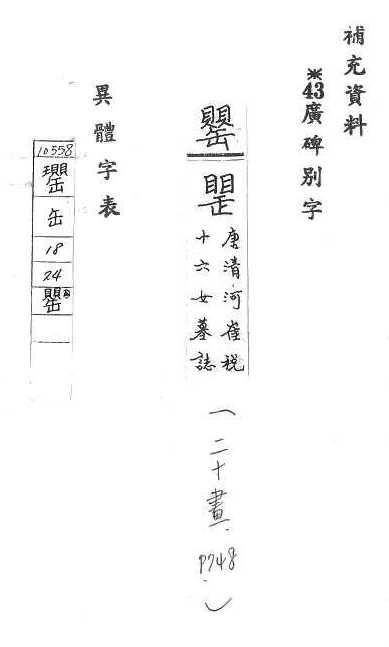 補充資料
※43廣碑別字
罌
唐清河崔稅
十六女墓誌
(二十畫.P748.)
異體字表
10558
缶
18
24